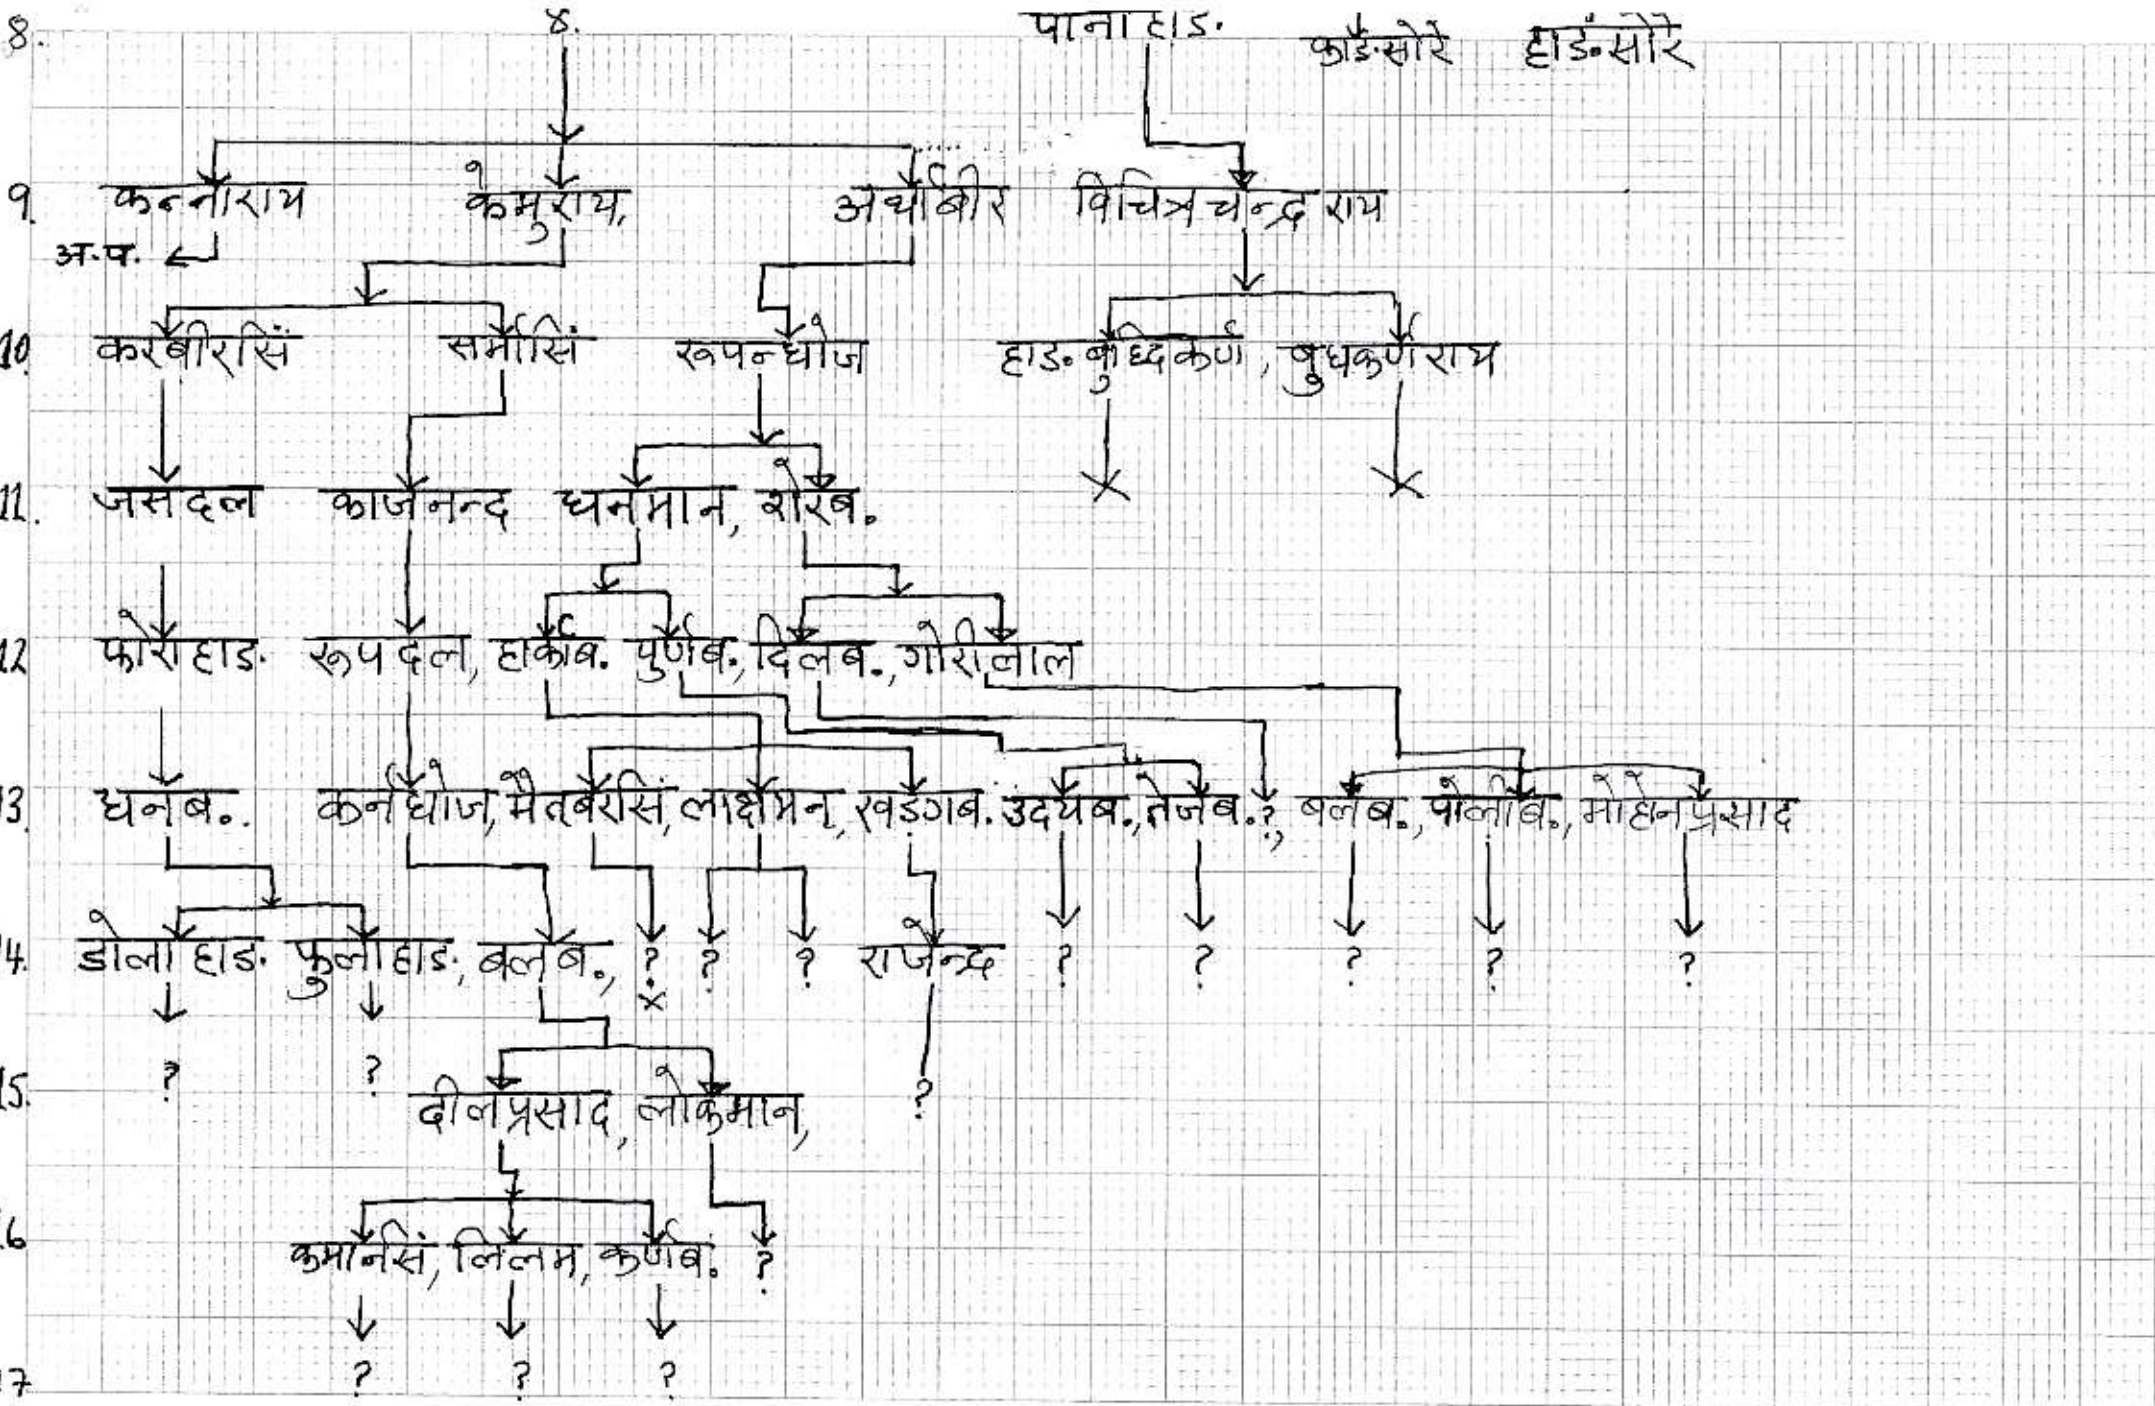 8. ४. पाना हाङ. काङ.सोरे हाङ.सोरे
9. कन्नाराय केमुराय, अर्थाबीर विचित्र चन्द्र राय
अ.प.
10 करबीरसिं सर्मासिं रूपन्धोज हाङ.बुध्दिकर्ण, बुधकर्णराय
11. जसदल काजेनन्द धनमान, शेरब.
12 फोराहाङ. रूपदल, हार्काब. पुर्णब., दिलब., गोरीलाल
13. धनब.. कर्नधोज, मैतबरसिं, लाक्षेमन, खड्गब. उदयब., तेजब. ?, बलब., पोलीब., मोहोनप्रसाद
14. डोला हाङ. फुलाहाङ., बलब., ? ? ? राजेन्द्र ? ? ? ? ?
x
15. ? ? दीलप्रसाद, लोकमान, ?
16 कमानसिं, लिलम, कर्णब. ?
17 ? ? ?